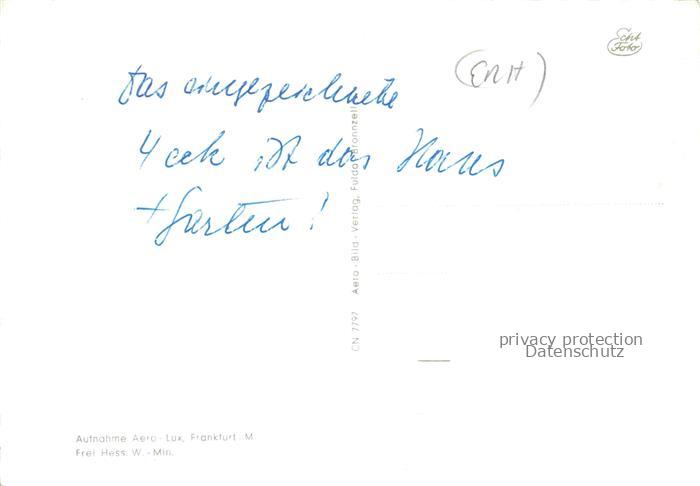 Echt
Foto
(EnH)
Das eingezeichnete
4 eck ist das Haus
+ Garten!
CN 7797 Aero-Bild-Verlag, Fulda-Bronnzell
privacy protection
Datenschutz
Aufnahme Aero-Lux, Frankfurt. M.
Frei Hess. W.-Min.